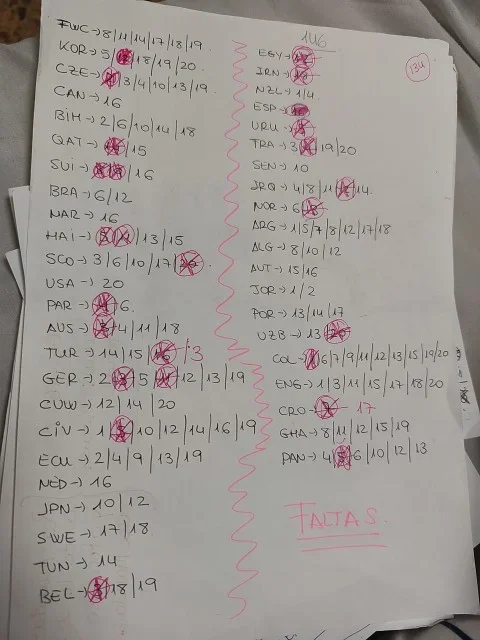 FWC→8/11/14/17/18/19
KOR→5/18/19/20
CZE→3/4/10/13/19
CAN→16
BIH→2/6/10/14/18
QAT→15
SUI→16
BRA→6/12
MAR→16
HAI→13/15
SCO→3/6/10/17
USA→20
PAR→6
AUS→4/11/18
TUR→14/15/16/3
GER→2/5/12/13/19
CUW→12/14/20
CIV→1/10/12/14/16/19
ECU→2/4/9/13/19
NED→16
JPN→10/12
SWE→17/18
TUN→14
BEL→18/19
146
134
EGY→
IRN→
NZL→1/4
ESP→
URU→
TRA→3/19/20
SEN→10
IRQ→4/8/11/14
NOR→6
ARG→1/5/7/8/12/17/18
ALG→8/10/12
AUT→15/16
JOR→1/2
POR→13/14/17
UZB→13
COL→6/7/9/11/12/13/15/19/20
ENG→1/3/11/15/17/18/20
CRO→17
GHA→8/11/12/15/19
PAN→4/6/10/12/13
FALTAS